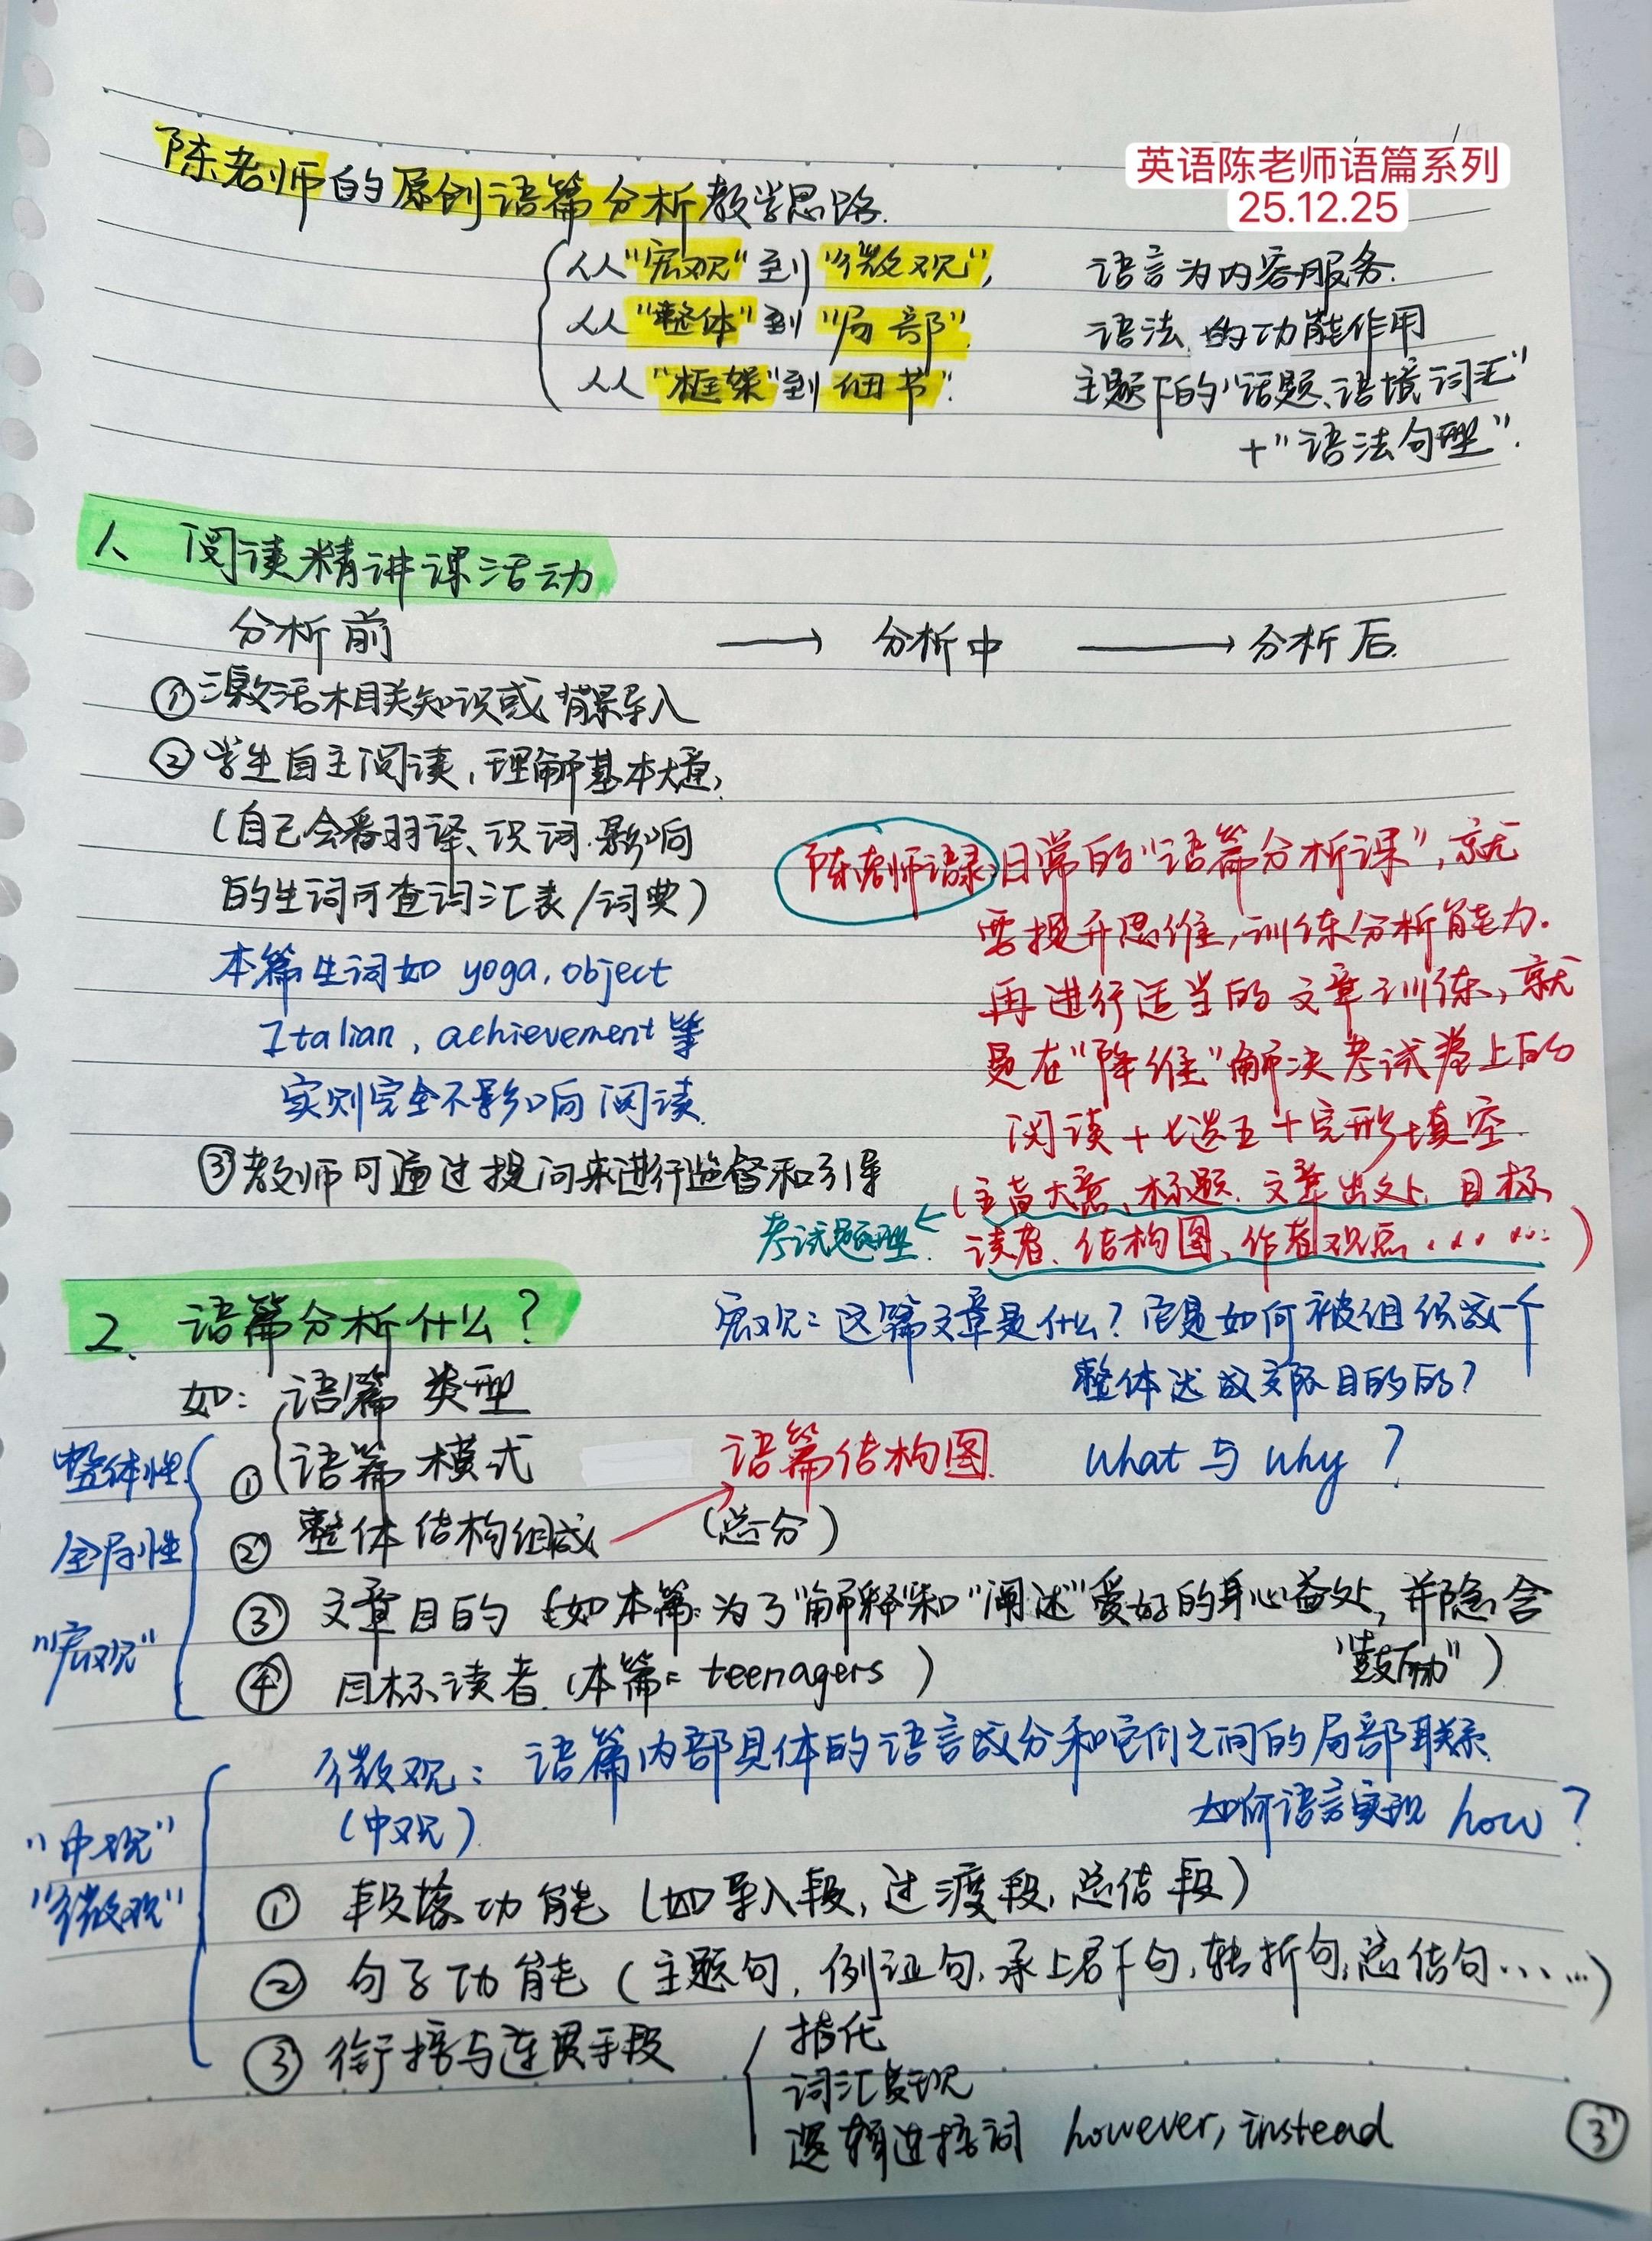 英语陈老师语篇系列
25.12.25
陈老师的原创语篇分析教学思路.
从"宏观"到"微观", 语言为内容服务.
从"整体"到"局部". 语法的功能作用
从"框架"到细节". 主题下的"话题、语境词汇"
+"语法句型".
1、阅读精讲课活动
分析前 → 分析中 → 分析后.
①激活相关知识或背景导入
②学生自主阅读,理解基本大意,
(自己会翻译、识词.影响
的生词可查词汇表/词典)
本篇生词如 yoga, object
Italian, achievement等
实则完全不影响阅读.
③教师可通过提问来进行监督和引导
陈老师语录:日常的"语篇分析课",就
要提升思维,训练分析能力.
再进行适当的文章训练,就
是在"降维"解决考试卷上的
阅读+七选五+完形+填空.
(主旨大意、标题、文章出处、目标
考试题型. ← 读者、结构图、作者观点……)
2、语篇分析什么?
宏观:这篇文章是什么?它是如何被组织成一个
整体达成交际目的的?
如: 语篇类型
① 语篇模式
语篇结构图. What 与 why ?
② 整体结构组成 → (总分)
③ 文章目的 (如本篇:为了"解释"和"阐述"爱好的身心益处,并隐含
"鼓励")
④ 目标读者.(本篇: teenagers )
整体性
全局性
"宏观"
微观: 语篇内部具体的语言成分和它们之间的局部联系.
(中观) 如何语言实现 how ?
"中观"
"微观"
① 段落功能 (如导入段,过渡段,总结段)
② 句子功能 (主题句,例证句,承上启下句,转折句,总结句……)
③ 衔接与连贯手段
指代
词汇复现
逻辑连接词 however, instead
③